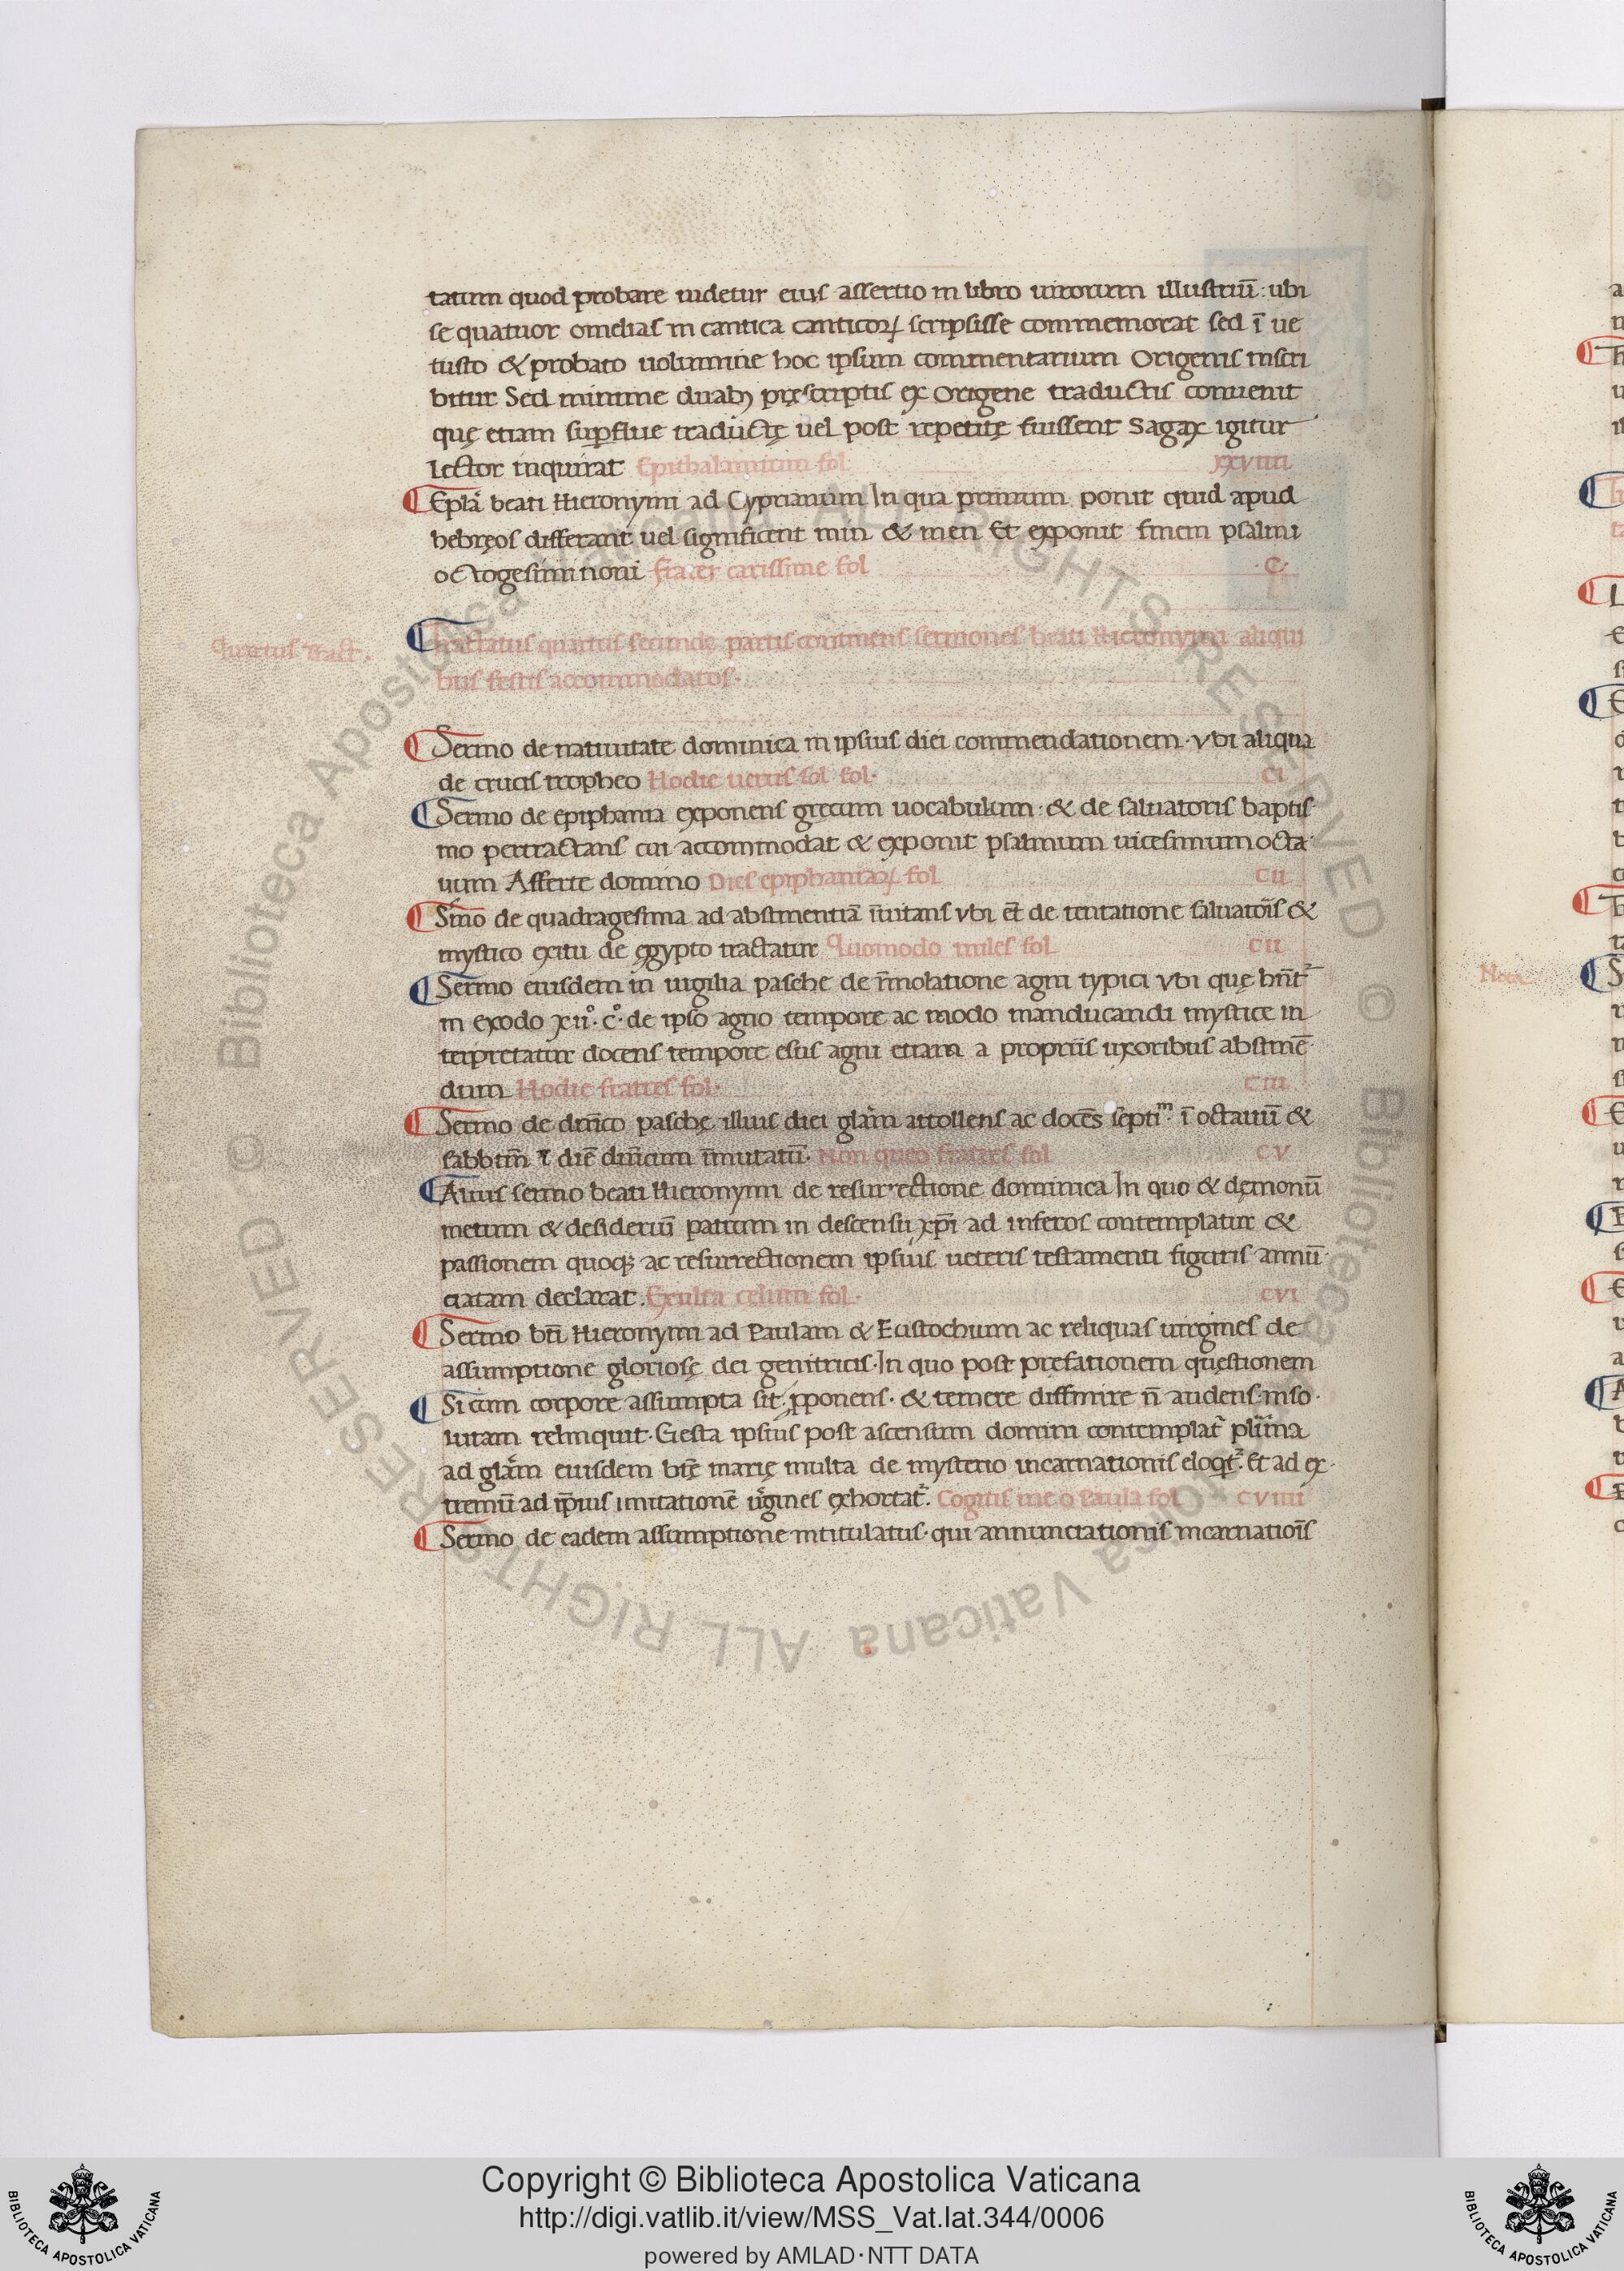 tatum quod probare uidetur eius assertio in libro uirorum illustriū: ubi
se quatuor omelias in cantica canticoꝝ scripsisse commemorat sed ī ue
tusto & probato uolumine hoc ipsum commentarium Origenis inscri
bitur Sed minime duabꝫ pręscriptis ex Origene traductis conuenit
quę etiam suꝑflue traductę uel post repetitę fuissent Sagax igitur
Lector inquirat Epithalamium fol xxviiii
Epl̄a beati Hieronymi ad Cyprianum In qua primum ponit quid apud
hebręos differant uel significent min & men Et exponit finem psalmi
octogesimi noni Frater carissime fol .C.
Quartus Tract.
Tractatus quartus secundę partis continens sermones beati Hieronymi aliqui
bus festis accommodatos.
Sermo de natiuitate dominica in ipsius diei commendationem. vbi aliqua
de crucis tropheo Hodie uerus sol fol. CI
Sermo de epiphania exponens gręcum uocabulum: & de saluatoris baptis
mo pertractans cui accommodat & exponit psalmum uicesimum octa
uum Afferte domino Dies epiphaniaꝝ fol CII
Sm̄o de quadragesima ad abstinentiā īuitans vbi et̄ de tentatione saluatoīs &
mystico exitu de ęgypto tractatur Quomodo miles fol CII
Sermo eiusdem in uigilia pasche de īmolatione agni typici vbi quę hn̄t᷑
in exodo xii°. c°. de ipso agno tempore ac modo manducandi mystice in
terpretatur docens tempore esus agni etiam a propriis uxoribus abstinē
dum Hodie fratres fol. CIII
Sermo de dn̄ico paschę illius diei gl̄am attollens ac docēs septiᵐ. ī octauū &
sabbtm̄ ī diē dn̄icum īmutatū. Non queo fratres fol CV
Alius sermo beati Hieronymi de resurrectione dominica In quo & dęmonū
metum & desideriū patrum in descensu xp̄i ad inferos contemplatur &
passionem quoqꝫ ac resurrectionem ipsius ueteris testamenti figuris annū
ciatam declarat. Exulta celum fol. CVI
Sermo bt̄i Hieronymi ad Paulam & Eustochium ac reliquas uirgines de
assumptione gloriosę dei genitricis. In quo post prefationem quęstionem
Si cum corpore assumpta sit ꝓponens. & temere diffinire n̄ audens inso
lutam relinquit. Gesta ipsius post ascensum domini contemplat᷑ plīma
ad gl̄am eiusdem btę̄ marię multa de mysterio incarnationis eloqt᷑. Et ad ex
tremū ad ip̄ius imitationē ūgines exhortat᷑. Cogitis me o Paula fol CVIIII
Sermo de eadem assumptione intitulatus. qui annunciationis incarnatioīs
Nota
Biblioteca Apostolica Vaticana ALL RIGHTS RESERVED ©
Biblioteca Apostolica Vaticana ALL RIGHTS RESERVED ©
Copyright © Biblioteca Apostolica Vaticana
http://digi.vatlib.it/view/MSS_Vat.lat.344/0006
powered by AMLAD·NTT DATA
BIBLIOTECA APOSTOLICA VATICANA
BIBLIOTECA APOSTOLICA VATICANA